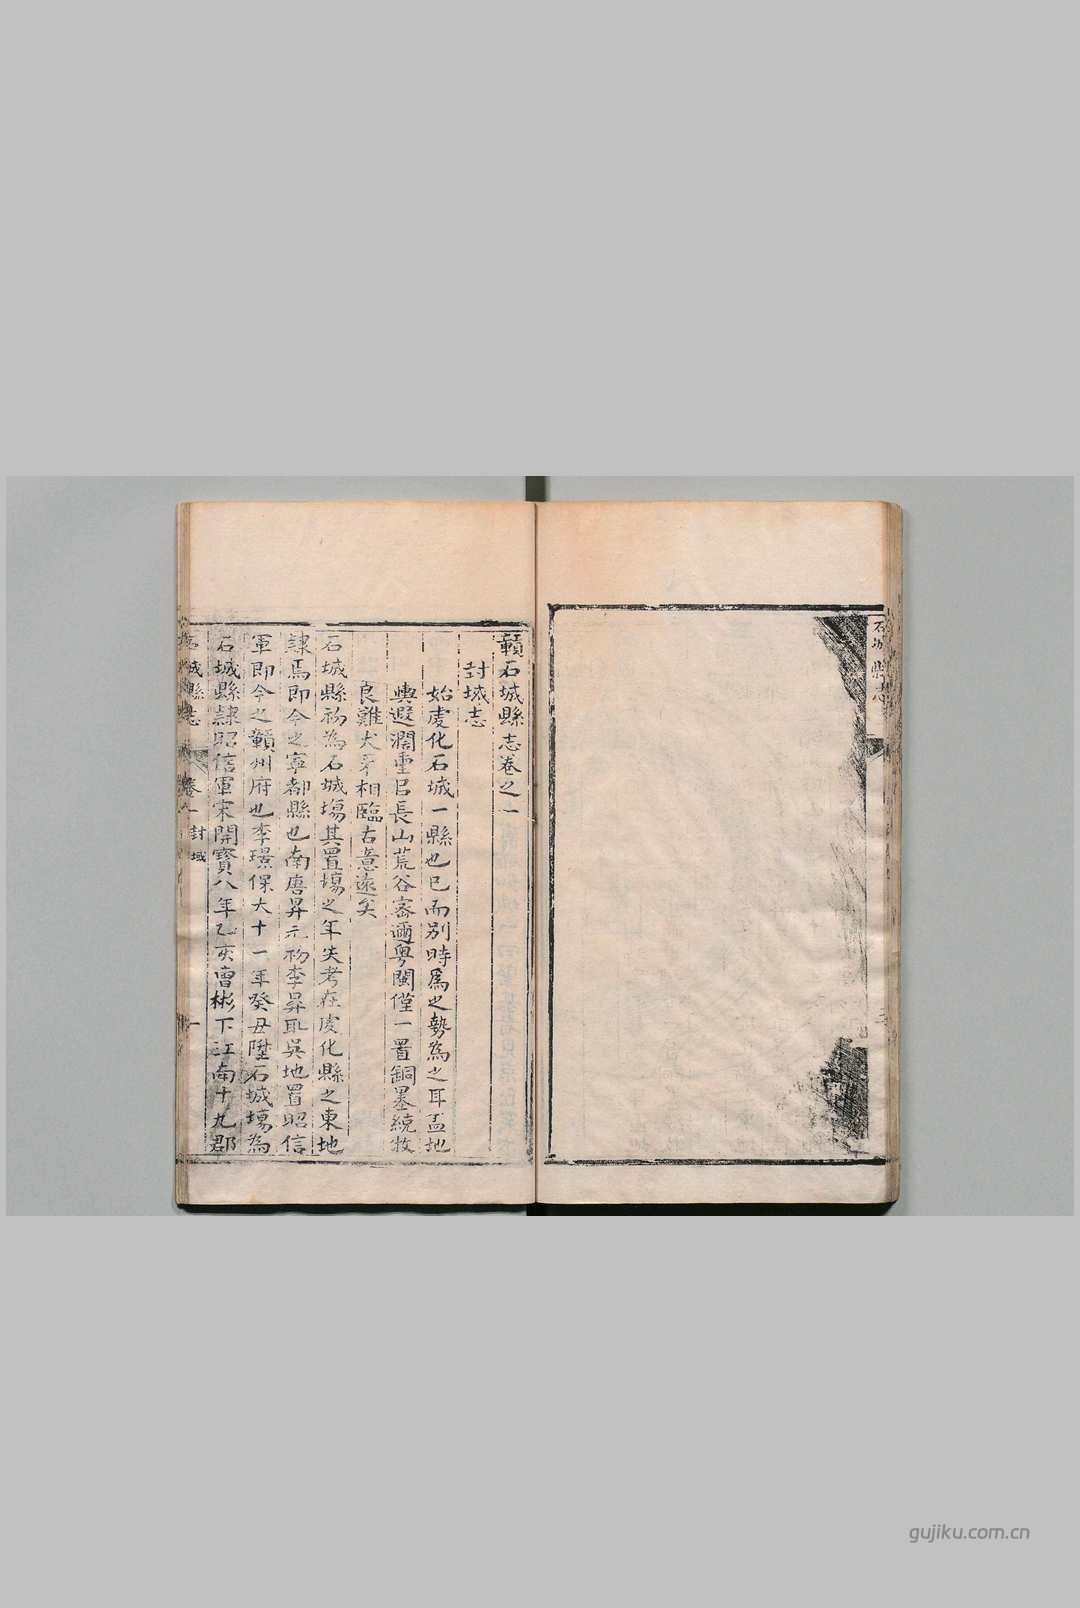 石城縣志
贛石城縣志卷之一
封域志
始虔化石城一縣也已而別時爲之勢為之耳盖地
輿遐濶重岊長山荒谷密邇粤閩僅一置銅墨統牧
良難犬牙相臨古意遠矣
石城縣初為石城塲其置塲之年失考在虔化縣之東地
隷焉即今之寧都縣也南唐昇元初李昇取吳地置昭信
軍即今之贛州府也李璟保大十一年癸丑陞石城塲為
石城縣隷昭信軍宋開寳八年乙亥曹彬下江南十九郡
石城縣志 卷一 封域 一
gujiku.com.cn